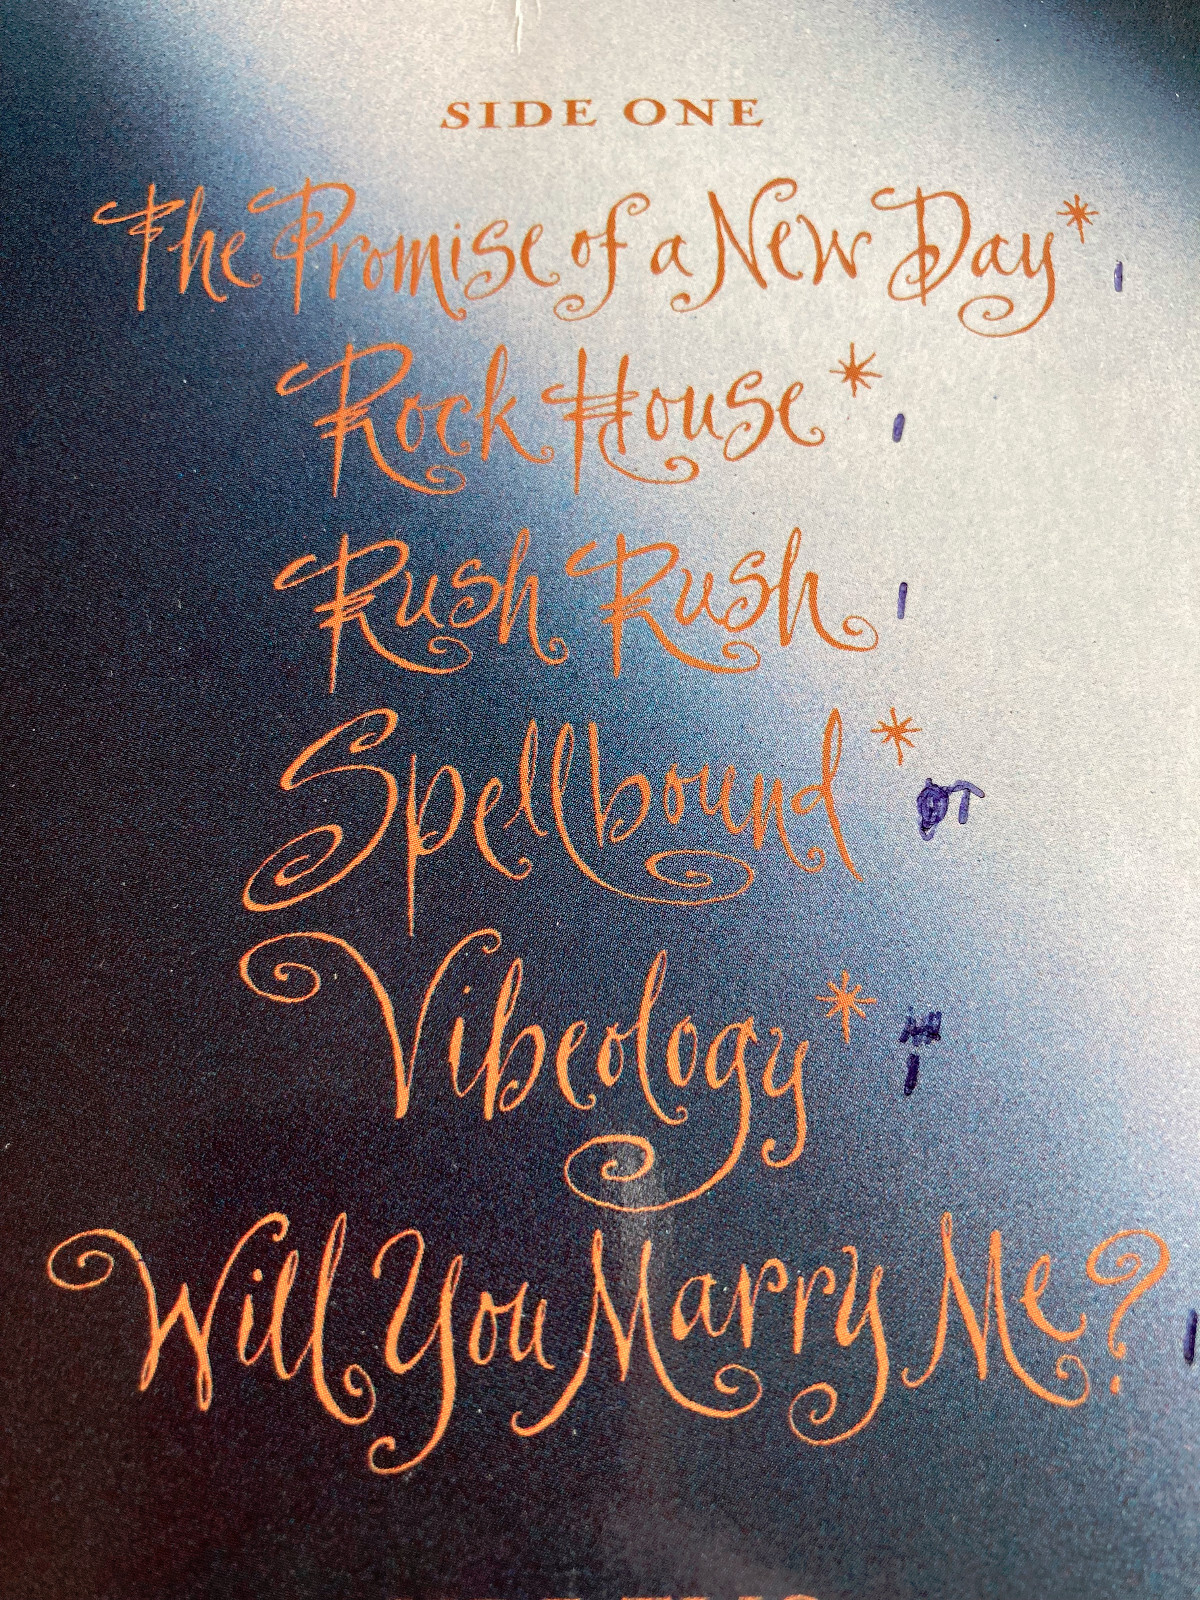 SIDE ONE
The Promise of a New Day*
Rock House*
Rush Rush
Spellbound*
Vibeology*
Will You Marry Me?